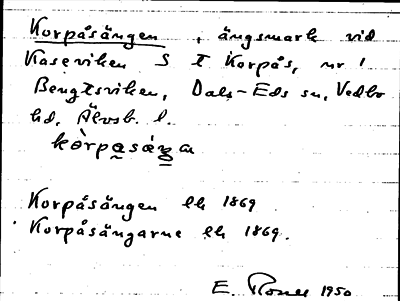 Korpåsängen, ängsmark vid
Kaseviken S I Korpås, nr 1
Bengtsviken, Dals-Eds sn, Vedbo
hd, Älvsb. l.
kòrpasáŋa
Korpåsängen ek 1869
Korpåsängarne ek 1869.
E. 1950